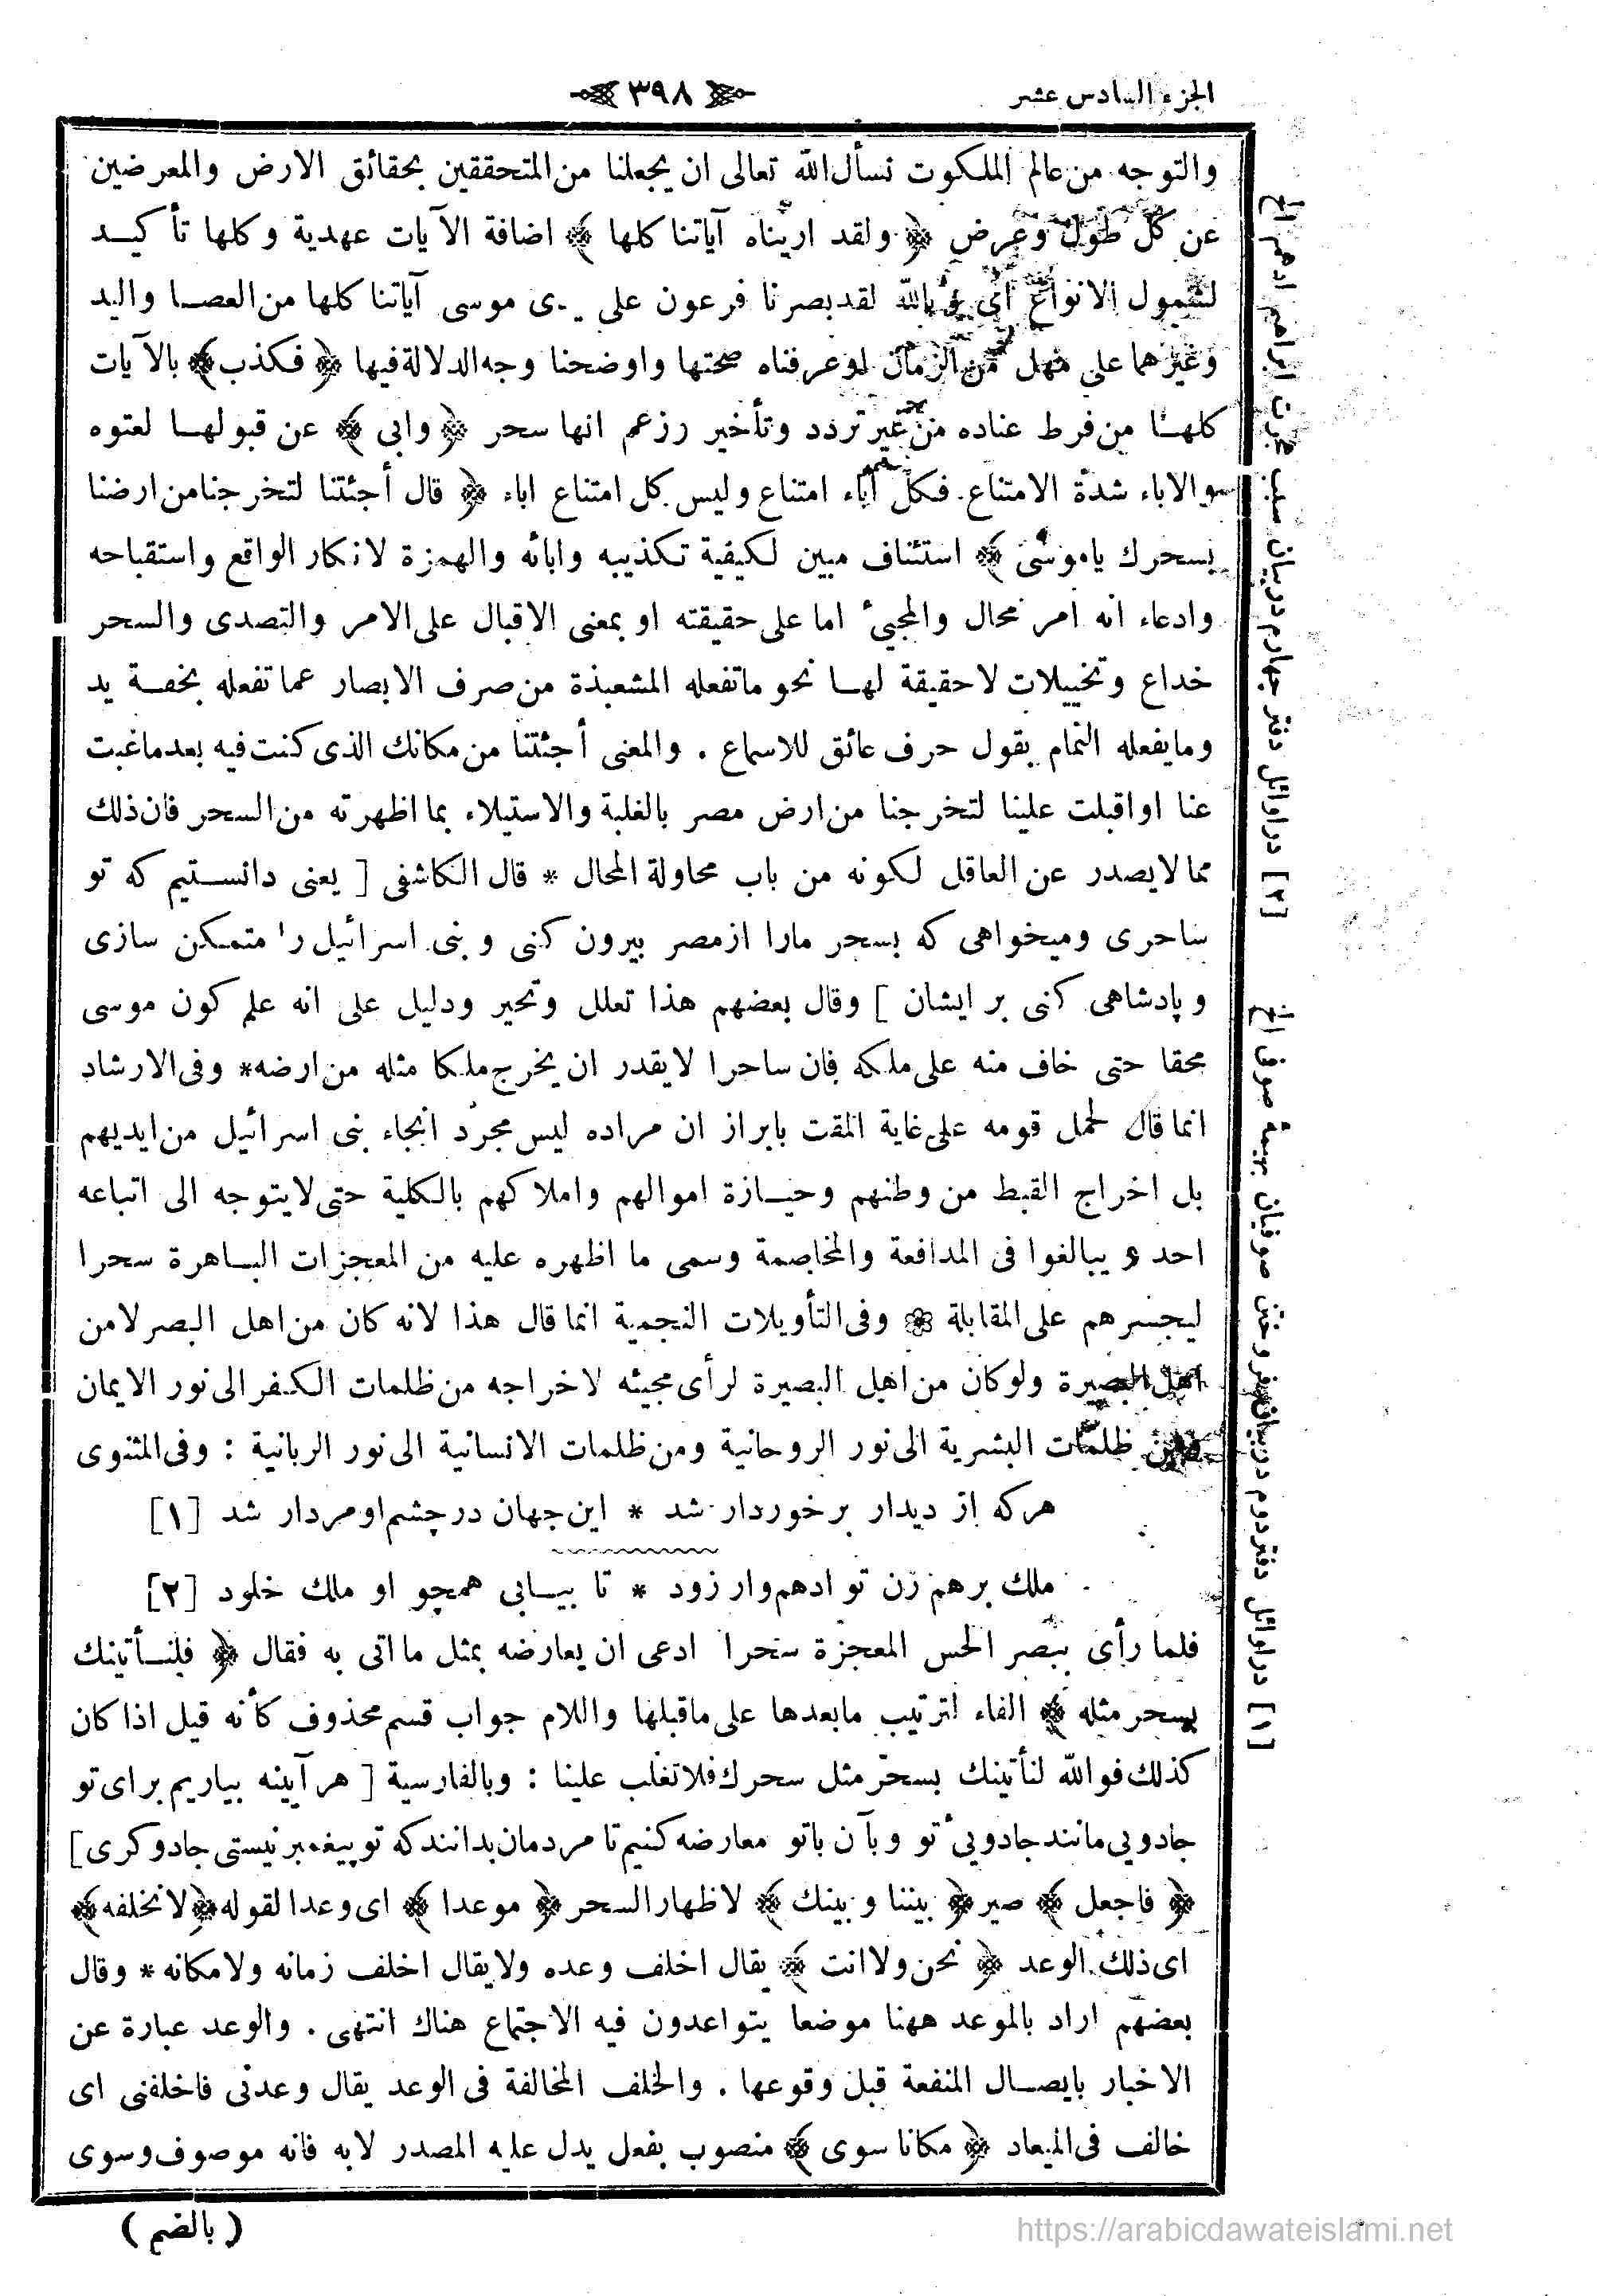 الجزء السادس عشر
﴿ ٣٩٨ ﴾
والتوجه من عالم الملكوت نسأل الله تعالى ان يجعلنا من المتحققين بحقائق الارض والمعرضين
عن كل طول وعرض ﴿ ولقد اريناه آياتنا كلها ﴾ اضافة الآيات عهدية وكلها تأكيد
لشمول الانواع اى وبالله لقد بصرنا فرعون على يدى موسى آياتنا كلها من العصا واليد
وغيرهما على مهل من الزمان لوعرفناه صحتها واوضحنا وجه الدلالة فيها ﴿ فكذب ﴾ بالآيات
كلها من فرط عناده من غير تردد وتأخير وزعم انها سحر ﴿ وابى ﴾ عن قبولها لعتوه
والاباء شدة الامتناع فكل اباء امتناع وليس كل امتناع اباء ﴿ قال أجئتنا لتخرجنا من ارضنا
بسحرك ياموسى ﴾ استئناف مبين لكيفية تكذيبه وابائه والهمزة لانكار الواقع واستقباحه
وادعاء انه امر محال والمجيئ اما على حقيقته او بمعنى الاقبال على الامر والتصدى والسحر
خداع وتخييلات لاحقيقة لها نحو ماتفعله المشعبذة من صرف الابصار عما تفعله بخفة يد
ومايفعله النمام بقول حرف عائق للاسماع . والمعنى أجئتنا من مكانك الذى كنت فيه بعد ماغبت
عنا او اقبلت علينا لتخرجنا من ارض مصر بالغلبة والاستيلاء بما اظهرته من السحر فان ذلك
مما لايصدر عن العاقل لكونه من باب محاولة المحال * قال الكاشفى [ يعنى دانستيم كه تو
ساحرى وميخواهى كه بسحر مارا ازمصر بيرون كنى وبنى اسرائيل را متمكن سازى
وپادشاهى كنى بر ايشان ] وقال بعضهم هذا تعلل وتحير ودليل على انه علم كون موسى
محقا حتى خاف منه على ملكه فان ساحرا لايقدر ان يخرج ملكا مثله من ارضه* وفى الارشاد
انما قال لحمل قومه على غاية المقت بابراز ان مراده ليس مجرد انجاء بنى اسرائيل من ايديهم
بل اخراج القبط من وطنهم وحيازة اموالهم واملاكهم بالكلية حتى لايتوجه الى اتباعه
احد و يبالغوا فى المدافعة والمخاصمة وسمى ما اظهره عليه من المعجزات الباهرة سحرا
ليجسرهم على المقابلة ۞ وفى التأويلات النجمية انما قال هذا لانه كان من اهل البصر لامن
اهل البصيرة ولو كان من اهل البصيرة لرأى مجيئه لاخراجه من ظلمات الكفر الى نور الايمان
ومن ظلمات البشرية الى نور الروحانية ومن ظلمات الانسانية الى نور الربانية : وفى المثنوى
هركه از ديدار برخوردار شد * اين جهان در چشم او مردار شد [١]
ملك برهم زن تو ادهم وار زود * تا بيابى همچو او ملك خلود [٢]
فلما رأى ببصر الحس المعجزة سحرا ادعى ان يعارضه بمثل ما اتى به فقال ﴿ فلنأتينك
بسحر مثله ﴾ الفاء لترتيب مابعدها على ماقبلها واللام جواب قسم محذوف كأنه قيل اذا كان
كذلك فوالله لنأتينك بسحر مثل سحرك فلاتغلب علينا : وبالفارسية [ هر آيينه بياريم براى تو
جادويى مانند جادويئ تو وبآن باتو معارضه كنيم تا مردمان بدانند كه تو پيغمبر نيستى جادوكرى ]
﴿ فاجعل ﴾ صير ﴿ بيننا وبينك ﴾ لاظهار السحر ﴿ موعدا ﴾ اى وعدا لقوله ﴿ لانخلفه ﴾
اى ذلك الوعد ﴿ نحن ولا انت ﴾ يقال اخلف وعده ولايقال اخلف زمانه ولامكانه * وقال
بعضهم اراد بالموعد ههنا موضعا يتواعدون فيه الاجتماع هناك انتهى . والوعد عبارة عن
الاخبار بايصال المنفعة قبل وقوعها . والخلف المخالفة فى الوعد يقال وعدنى فاخلفنى اى
خالف فى الميعاد ﴿ مكانا سوى ﴾ منصوب بفعل يدل عليه المصدر لابه فانه موصوف وسوى
( بالضم )
[١] دراوائل دفتردوم دربيان فروختن صوفيان بهيمهٔ صوفى الخ
[٢] دراوائل دفتر چهارم دربيان سبب هجرت ابراهيم ادهم الخ
https://arabicdawateislami.net